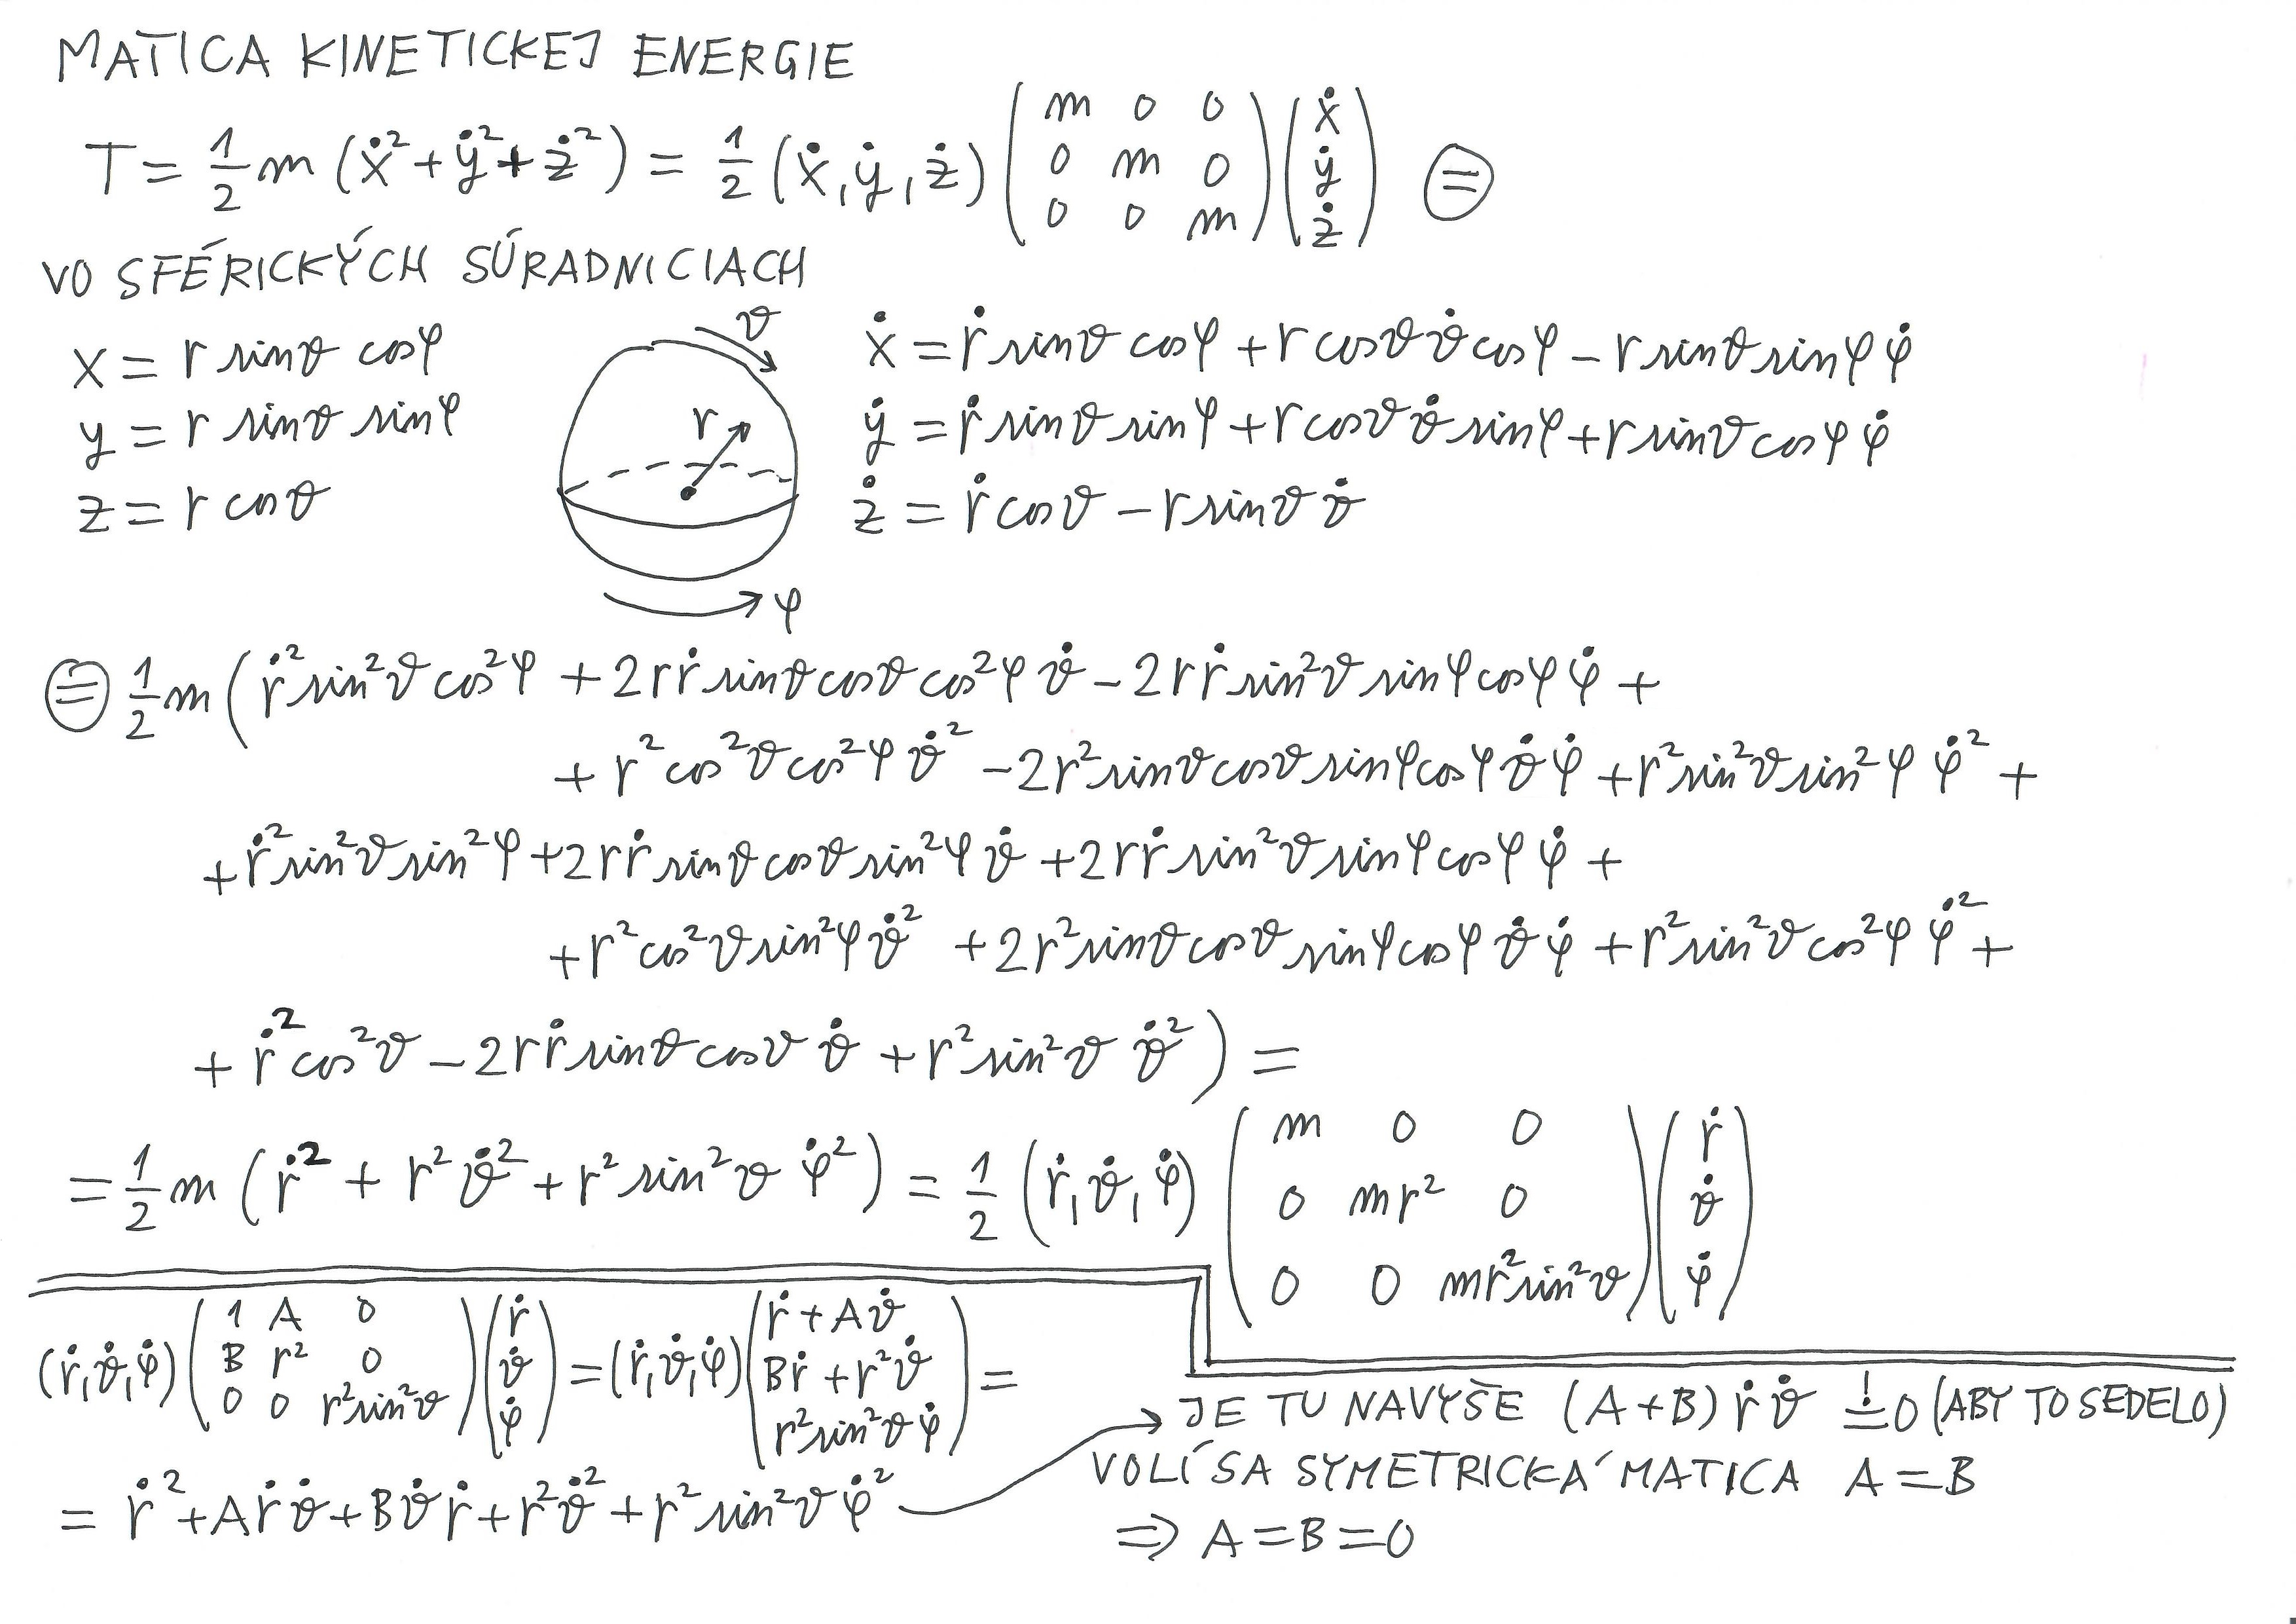 MATICA KINETICKEJ ENERGIE
T = 1/2 m (ẋ² + ẏ² + ż²) = 1/2 (ẋ, ẏ, ż) ( m 0 0 ; 0 m 0 ; 0 0 m ) ( ẋ ; ẏ ; ż ) ⊜
VO SFÉRICKÝCH SÚRADNICIACH
x = r sinϑ cosφ
y = r sinϑ sinφ
z = r cosϑ
ϑ
r
φ
ẋ = ṙ sinϑ cosφ + r cosϑ ϑ̇ cosφ − r sinϑ sinφ φ̇
ẏ = ṙ sinϑ sinφ + r cosϑ ϑ̇ sinφ + r sinϑ cosφ φ̇
ż = ṙ cosϑ − r sinϑ ϑ̇
⊜ 1/2 m ( ṙ² sin²ϑ cos²φ + 2rṙ sinϑ cosϑ cos²φ ϑ̇ − 2rṙ sin²ϑ sinφ cosφ φ̇ +
+ r² cos²ϑ cos²φ ϑ̇² − 2r² sinϑ cosϑ sinφ cosφ ϑ̇ φ̇ + r² sin²ϑ sin²φ φ̇² +
+ ṙ² sin²ϑ sin²φ + 2rṙ sinϑ cosϑ sin²φ ϑ̇ + 2rṙ sin²ϑ sinφ cosφ φ̇ +
+ r² cos²ϑ sin²φ ϑ̇² + 2r² sinϑ cosϑ sinφ cosφ ϑ̇ φ̇ + r² sin²ϑ cos²φ φ̇² +
+ ṙ² cos²ϑ − 2rṙ sinϑ cosϑ ϑ̇ + r² sin²ϑ ϑ̇² ) =
= 1/2 m ( ṙ² + r² ϑ̇² + r² sin²ϑ φ̇² ) = 1/2 (ṙ, ϑ̇, φ̇) ( m 0 0 ; 0 mr² 0 ; 0 0 mr² sin²ϑ ) ( ṙ ; ϑ̇ ; φ̇ )
(ṙ, ϑ̇, φ̇) ( 1 A 0 ; B r² 0 ; 0 0 r² sin²ϑ ) ( ṙ ; ϑ̇ ; φ̇ ) = (ṙ, ϑ̇, φ̇) ( ṙ + Aϑ̇ ; Bṙ + r²ϑ̇ ; r² sin²ϑ φ̇ ) =
= ṙ² + Aṙϑ̇ + Bϑ̇ṙ + r²ϑ̇² + r² sin²ϑ φ̇²
→ JE TU NAVYŠE (A+B) ṙ ϑ̇ =! 0 (ABY TO SEDELO)
VOLÍ SA SYMETRICKÁ MATICA A = B
⇒ A = B = 0